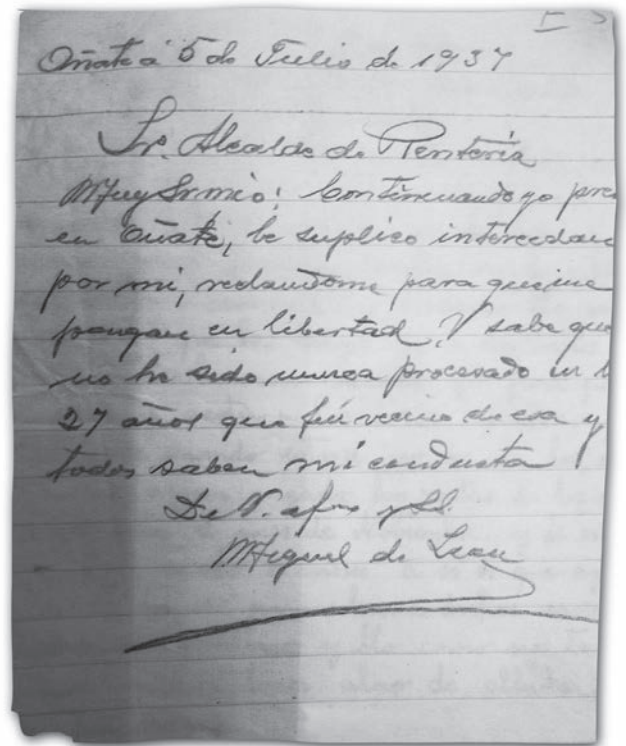 Oñate á 5 de Julio de 1937
Sr. Alcalde de Rentería
Muy Sr mio: Continuando yo pre
en Oñate, le suplico interceda
por mi, reclandome para que me
pongan en libertad, V sabe que
no he sido nunca procesado en l
27 años que fui vecino de esa y
todos saben mi conducta
De V. afmo y
Miguel de Leon